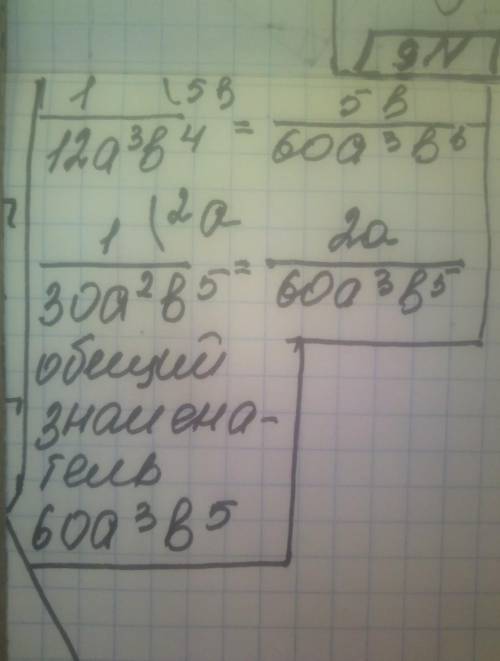 9N
1 (5в
12a³в⁴ = 5в
60a³в⁶
1 (2a
30a²в⁵ = 2a
60a³в⁵
общий
знамена-
тель
60a³в⁵